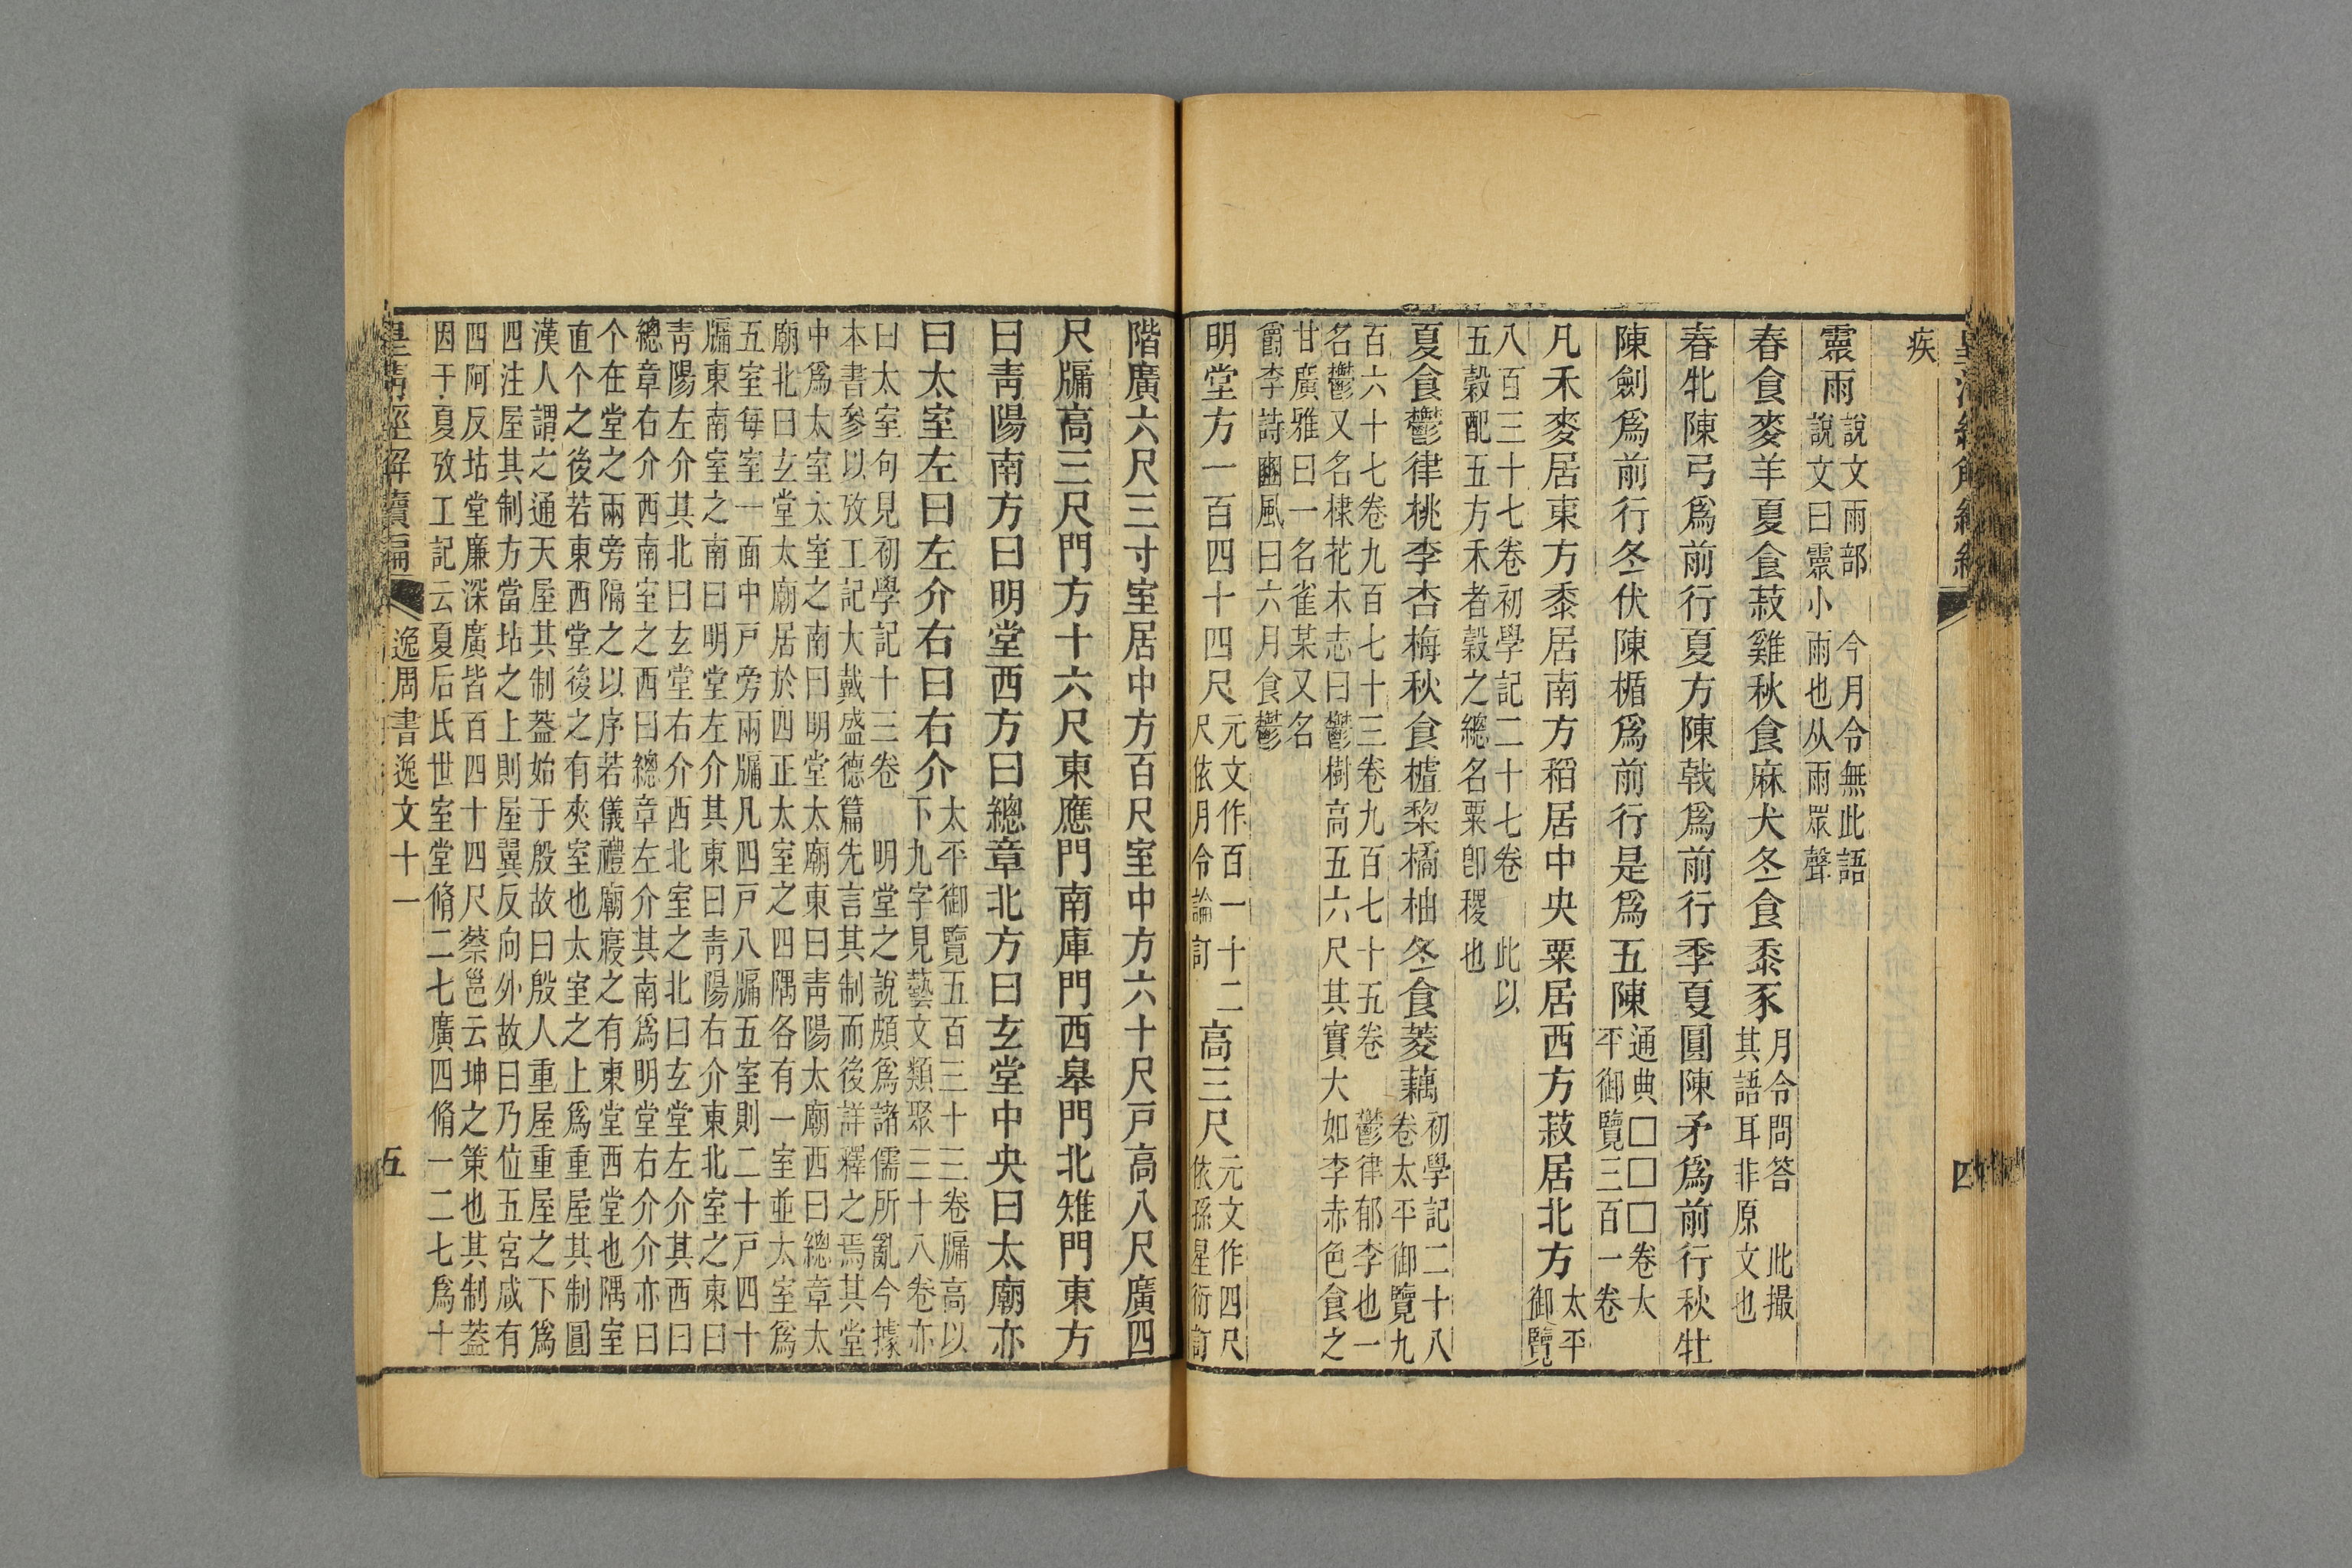 皇清經解續編
四
疾
霥雨說文雨部 今月令無此語
說文曰霥小雨也从雨眾聲
春食麥羊夏食菽雞秋食麻犬冬食黍豕月令問答 此撮
其語耳非原文也
春牝陳弓爲前行夏方陳戟爲前行季夏圓陳矛爲前行秋牡
陳劍爲前行冬伏陳楯爲前行是爲五陳通典□□□卷太
平御覽三百一卷
凡禾麥居東方黍居南方稻居中央粟居西方菽居北方太平
御覽
八百三十七卷初學記二十七卷 此以
五穀配五方禾者穀之總名粟卽稷也
夏食鬱律桃李杏梅秋食樝棃橘柚冬食菱藕初學記二十八
卷太平御覽九
百六十七卷九百七十三卷九百七十五卷 鬱律郁李也一
名鬱又名棣花木志曰鬱樹高五六尺其實大如李赤色食之
甘廣雅曰一名雀某又名
爵李詩豳風曰六月食鬱
明堂方一百四十四尺元文作百一十二
尺依月令論訂
高三尺元文作四尺
依孫星衍訂
階廣六尺三寸室居中方百尺室中方六十尺戸高八尺廣四
尺牖高三尺門方十六尺東應門南庫門西皋門北雉門東方
曰靑陽南方曰明堂西方曰總章北方曰玄堂中央曰太廟亦
曰太室左曰左介右曰右介太平御覽五百三十三卷牖高以
下九字見藝文類聚三十八卷亦
曰太室句見初學記十三卷 明堂之說頗爲諸儒所亂今據
本書參以攷工記大戴盛德篇先言其制而後詳釋之焉其堂
中爲太室太室之南曰明堂太廟東曰靑陽太廟西曰總章太
廟北曰玄堂太廟居於四正太室之四隅各有一室並太室爲
五室每室一面中戸旁兩牖凡四戸八牖五室則二十戸四十
牖東南室之南曰明堂左介其東曰靑陽右介東北室之東曰
靑陽左介其北曰玄堂右介西北室之北曰玄堂左介其西曰
總章右介西南室之西曰總章左介其南爲明堂右介介亦曰
个在堂之兩旁隔之以序若儀禮廟寢之有東堂西堂也隅室
直个之後若東西堂後之有夾室也太室之上爲重屋其制圓
漢人謂之通天屋其制蓋始于殷故曰殷人重屋重屋之下爲
四注屋其制方當坫之上則屋翼反向外故曰乃位五宮咸有
四阿反坫堂廉深廣皆百四十四尺蔡邕云坤之策也其制蓋
因于夏攷工記云夏后氏世室堂脩二七廣四脩一二七爲十
皇淸經解續編
逸周書逸文十一
五